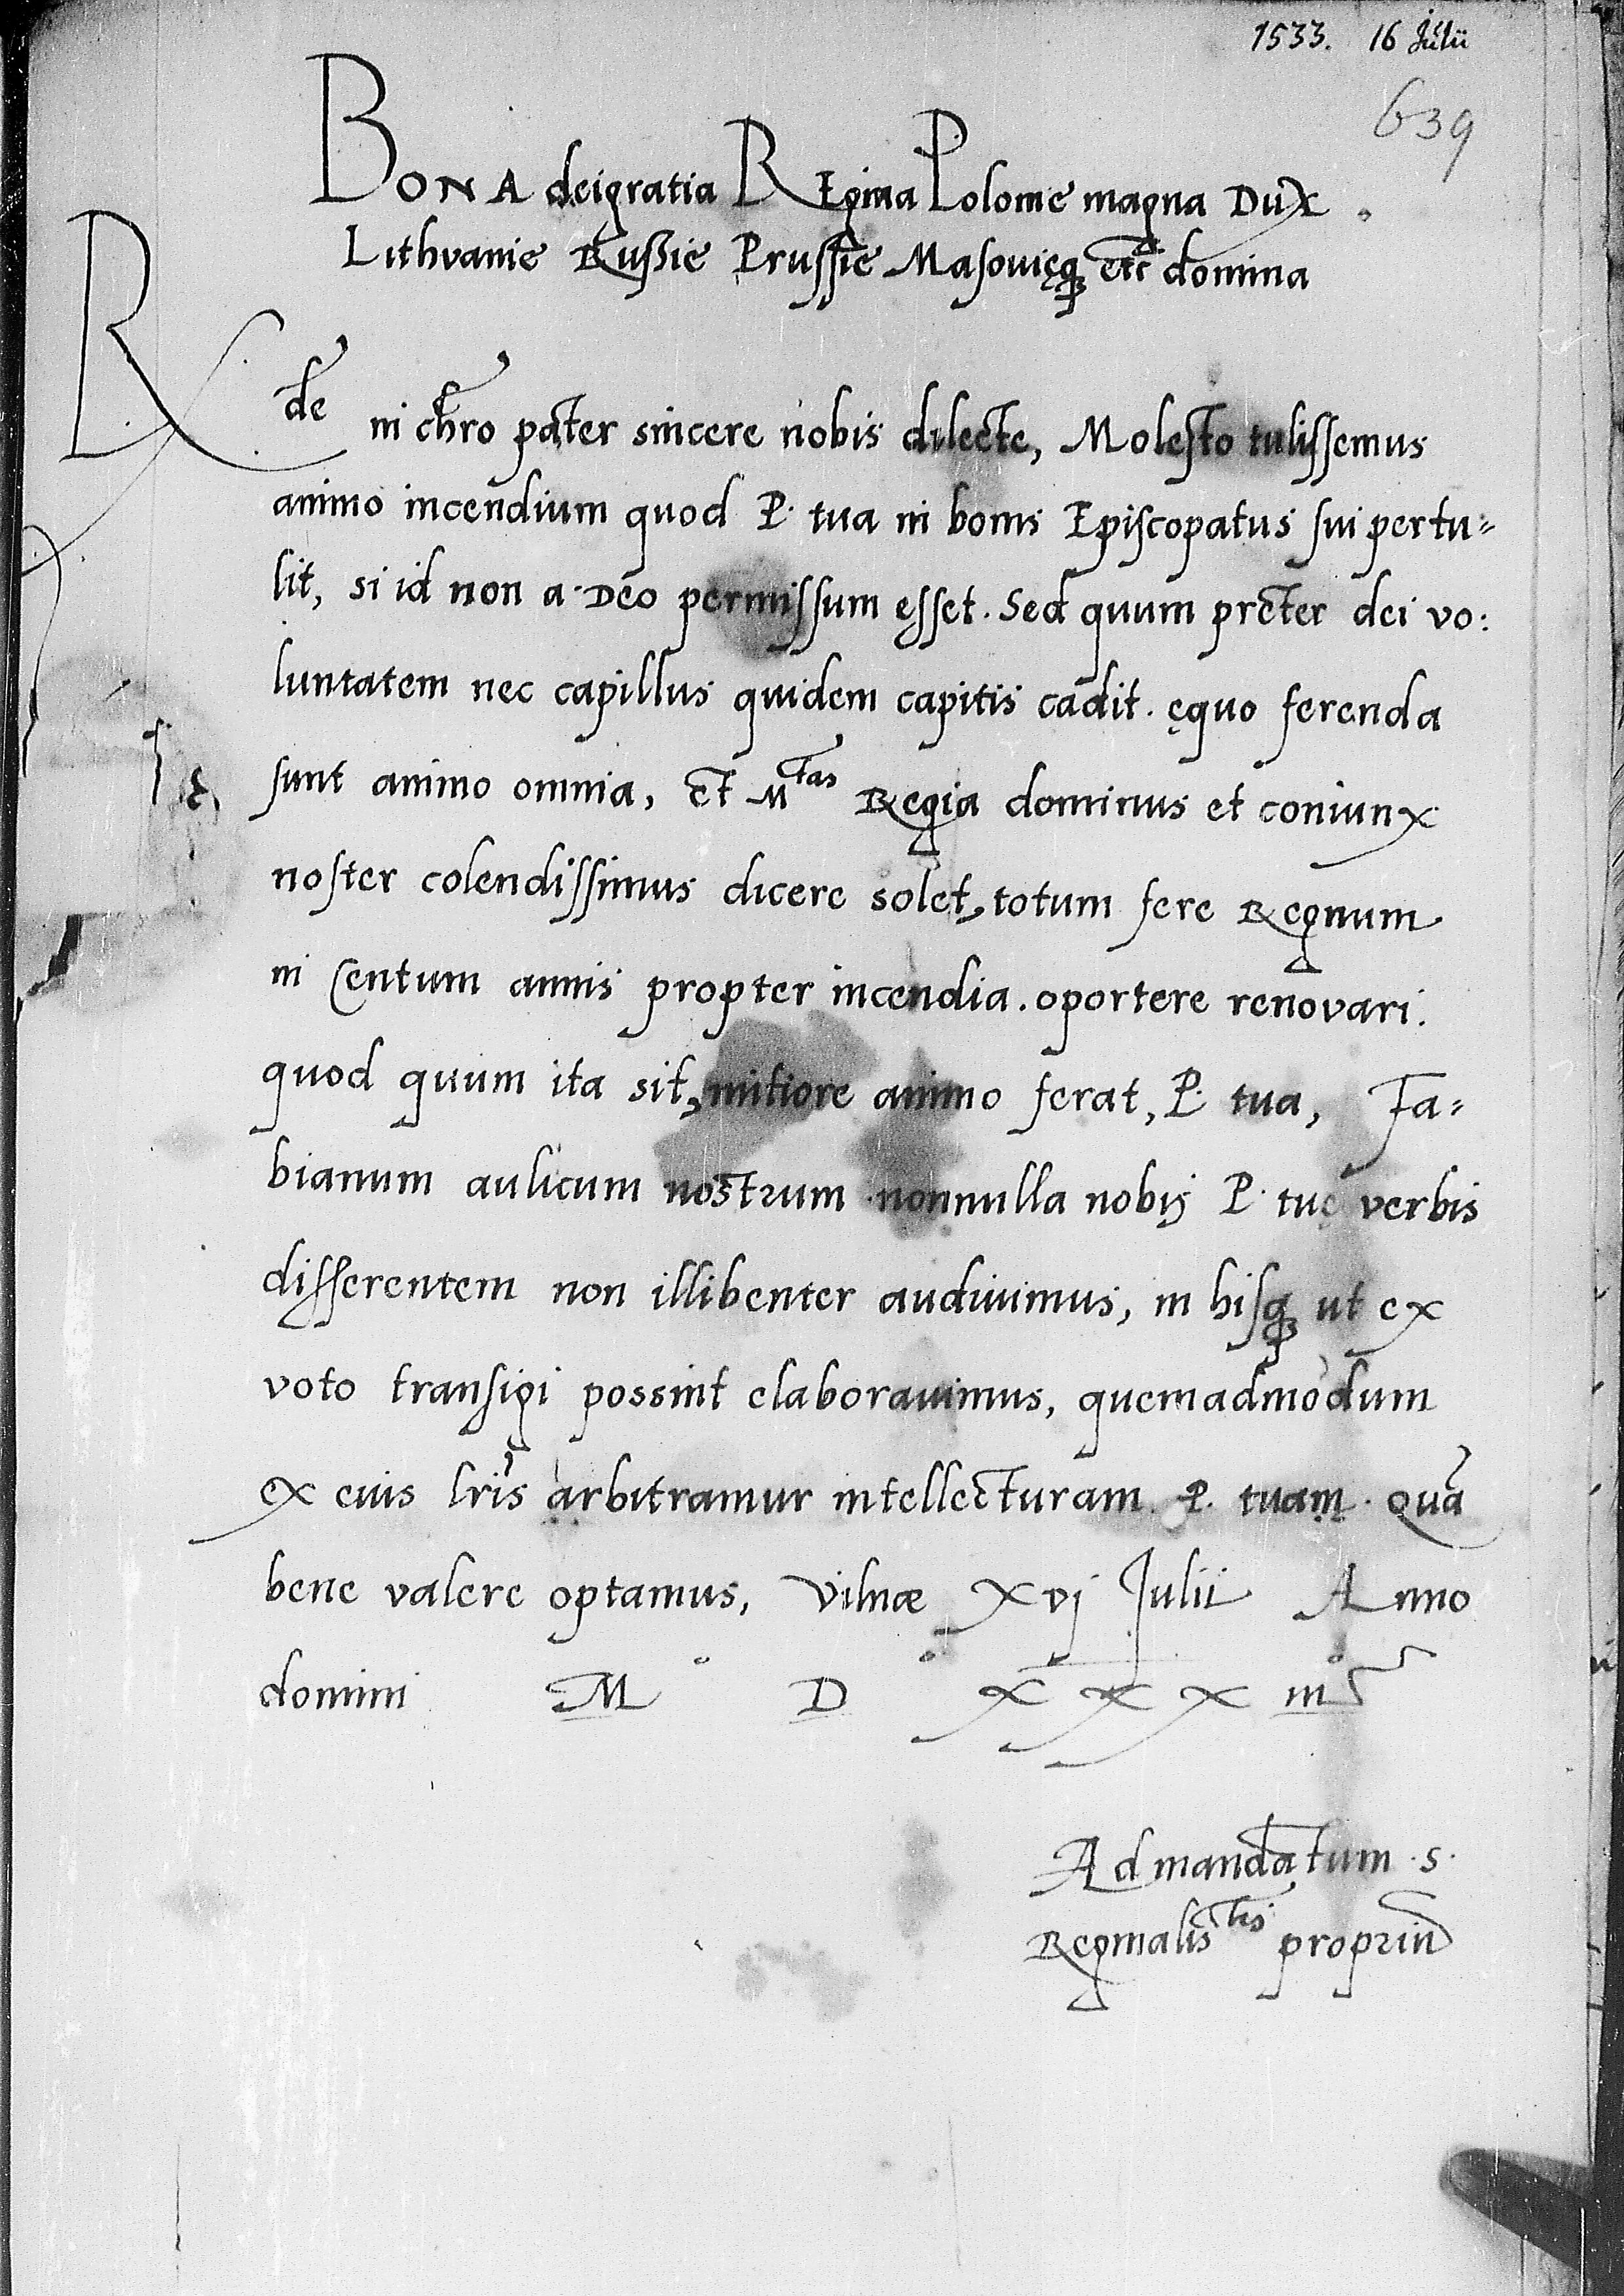 1533. 16 Julii
639
BONA dei gratia REgina Polonie magna Dux
Lithvanie Russie Prussie Masovięq etc domina
Rde in chro pater sincere nobis dilecte, Molesto tulissemus
animo incendium quod P. tua in bonis Episcopatus sui pertu=
lit, si id non a Deo permissum esset. Sed quum preter dei vo:
luntatem nec capillus quidem capitis cadit. ęquo ferenda
sunt animo omnia, et Mtas Regia dominus et coniunx
noster colendissimus dicere solet, totum fere Regnum
in Centum annis propter incendia. oportere renovari.
quod quum ita sit, mitiore animo ferat, P. tua, Fa=
bianum aulicum nostrum nonnulla nobis P. tuę verbis
differentem non illibenter audiuimus, in hisq ut ex
voto transigi possint elaborauimus, quemadmodum
ex eius lris arbitramur intellecturam P. tuam. quā
bene valere optamus, Vilnæ Xvj Julii Anno
domini M D XXX iii
Ad mandatum .s.
Reginalis tis propriu